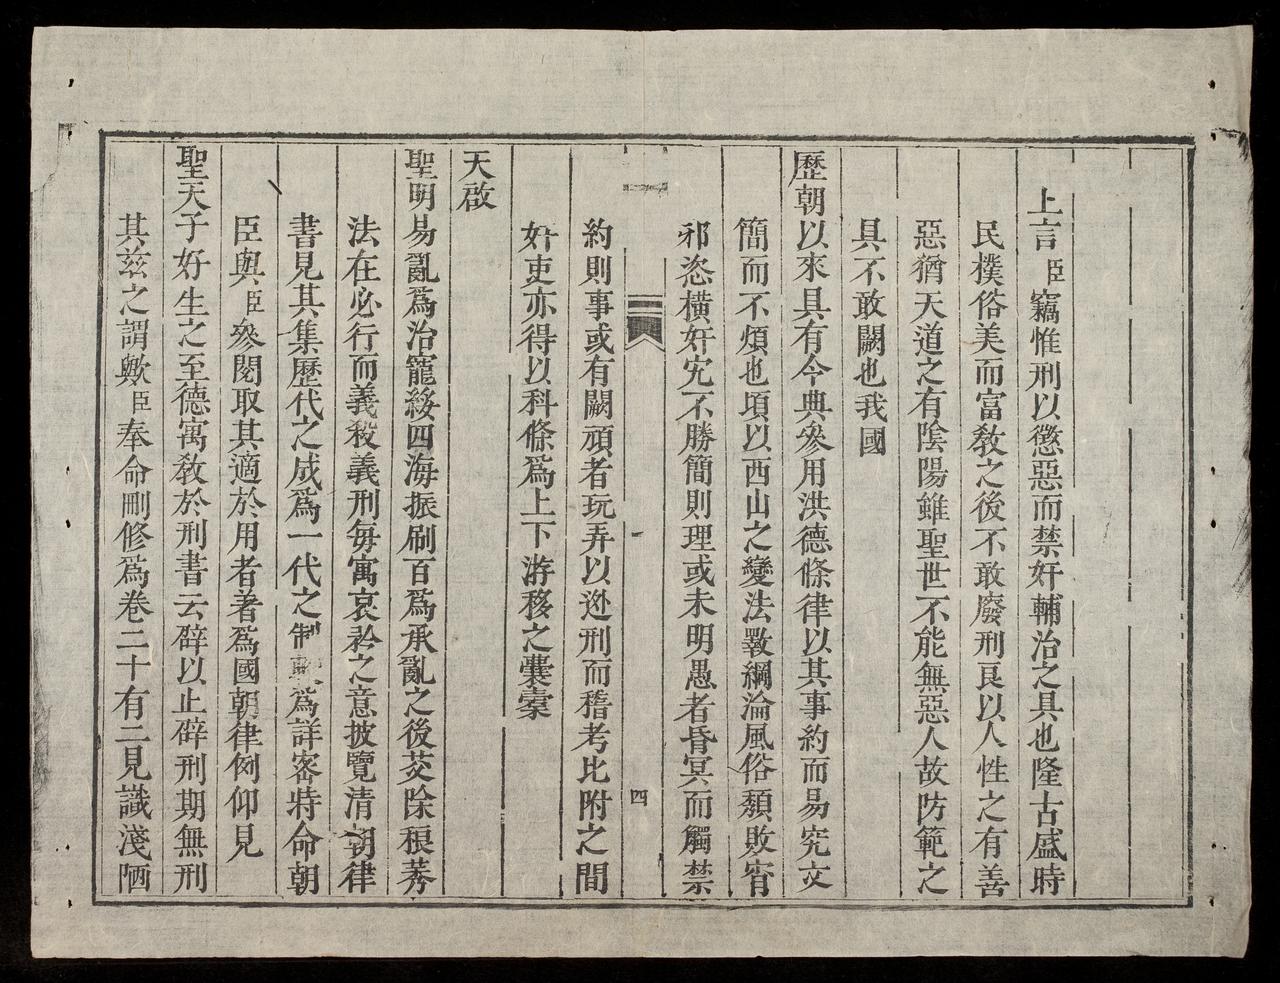 上言臣竊惟刑以懲惡而禁奸輔治之具也隆古盛時
民樸俗美而富教之後不敢廢刑良以人性之有善
惡猶天道之有陰陽雖聖世不能無惡人故防範之
具不敢闕也我國
歷朝以來具有今典參用洪德條律以其事約而易究文
簡而不煩也頃以西山之變法斁綱淪風俗頹敗宵
邪恣橫奸宄不勝簡則理或未明愚者昏冥而觸禁
四
約則事或有闕頑者玩弄以逃刑而稽考比附之間
奸吏亦得以科條爲上下游移之囊橐
天啟
聖明易亂爲治寵綏四海振刷百爲承亂之後芟除稂莠
法在必行而義殺義刑每寓哀矜之意披覽清朝律
書見其集歷代之成爲一代之制爲詳密特命朝
臣與臣參閱取其適於用者著爲國朝律例仰見
聖天子好生之至德寓教於刑書云辟以止辟刑期無刑
其茲之謂歟臣奉命刪修爲卷二十有二見識淺陋